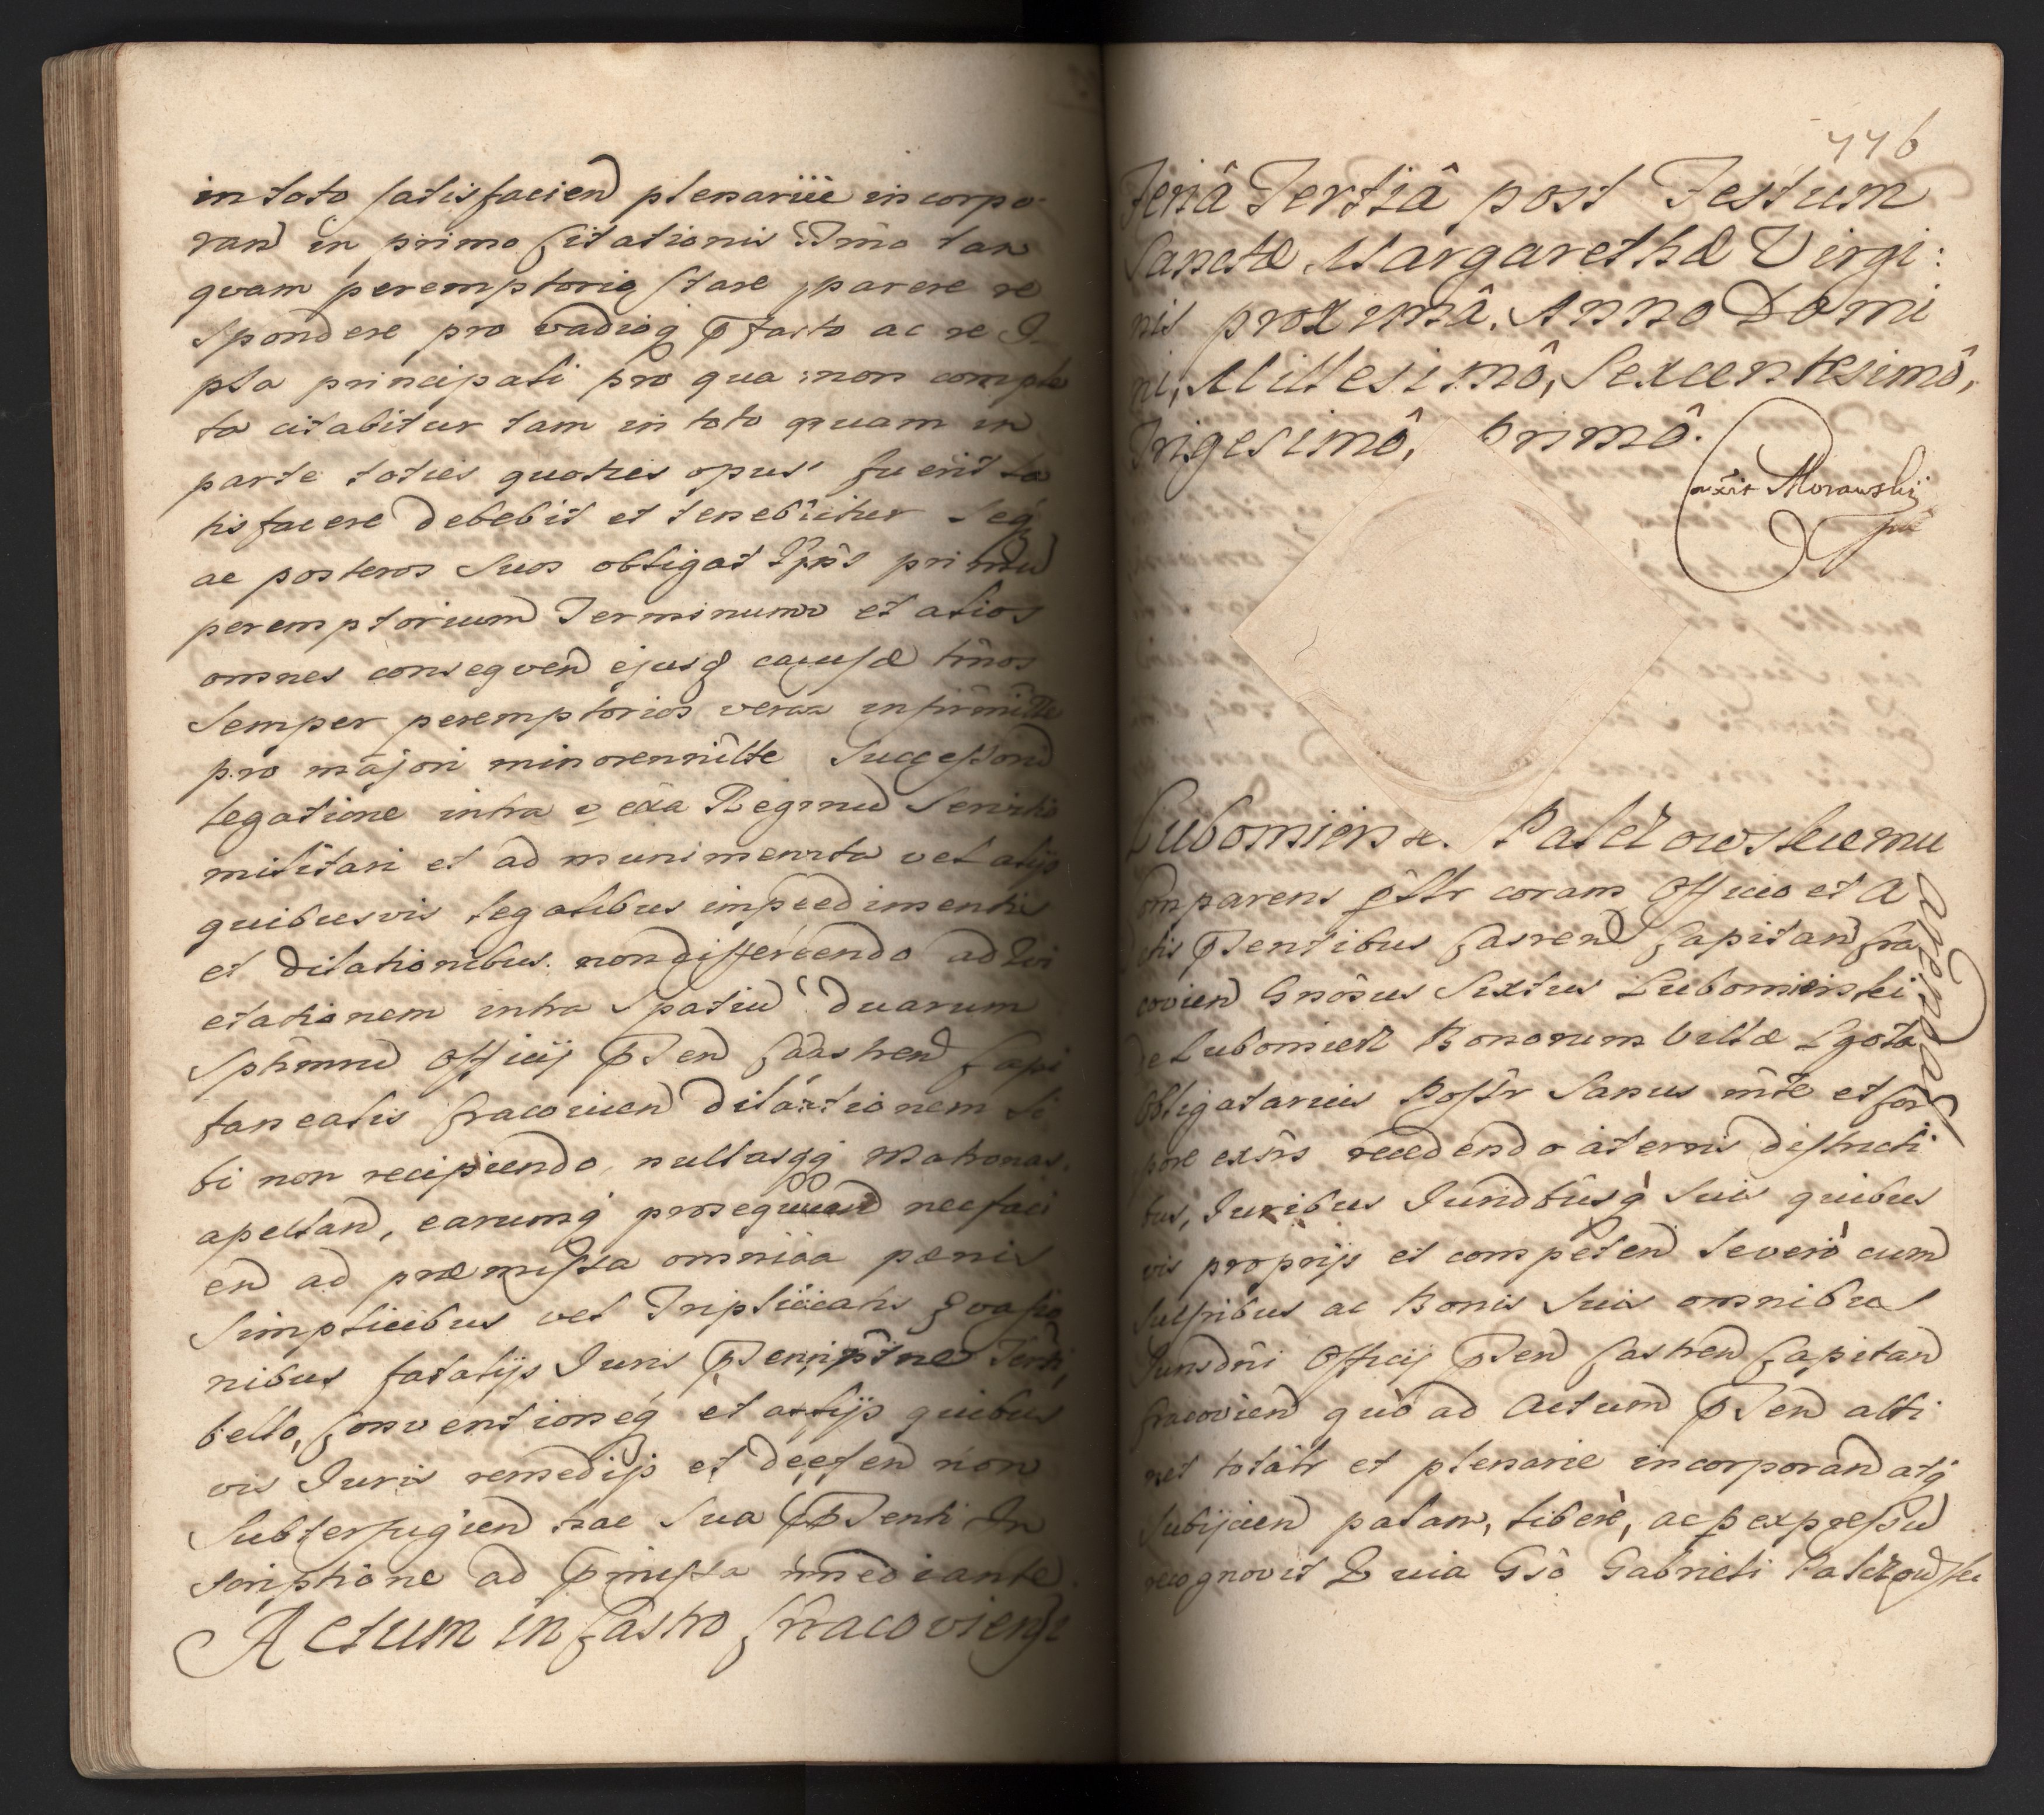 in toto satisfacien plenariiè incorpo-
ran in primo Citationis Tmno tan
quam peremptorio stare parere re
spondere pro vadioq pfacto ac re I
pta principali pro qua non comple
ta citabitur tam in toto quam in
parte toties quoties opus fuerit sa
tisfacere debebit et tenebitur Seq
ac posteros suos obligat primu
peremptorium Terminum et alios
omnes conseqven ejusq causæ tmnos
semper peremptorios
pro majori minorennitte Successorū
legatione intra v exa Regnū Servitio
militari et ad munimenta vel alijs
quibusvis legalibus impedimentis
et dilationibus non differendo ad
etationem intra spatiū duarum
Sptmnū Officij pnten Castren Capi
tanealis Cracovien dilationem si
bi non recipiendo, nullasqq Matronas
apellan, earumq prosequen nec faci
en ad præmissa omnia pænis
simplicibus vel Triplicatis Evasio
nibus fatalijs Juris
bello, Conventioneq et alijs quibus
vis Juris remedijs et deefen non
subterfugien hac Sua pnti In
scriptione ad pmissa mediante
Actum in Castro Cracoviensi
776
Feriâ Tertiâ post Festum
Sanctæ Margarethæ Virgi:
nis proximâ, Anno Domi
ni, Millesimô, Sexcentesimô,
Trigesimô, primô.
Morawskij
Lubomiersk. Palczowskiemu
omparens psltr coram Officio et A
ctis pntentibus Castren Capitan Cra
covien Gnōsus Sixtus Lubomierski
de Lubomierz Bonorum Villæ Lgota
Obligatarius Posśr Sanus mte et cor
pore exnš recedendo àternis districti
bus, Juribus Jundbusq̀ suis quibus
vis proprijs et competen severo cum
Sulsribus ac Bonis suis omnibus
Jurisdni Officij pnten Castren Capitan
Cracovien quò ad Actum pnten atti
net totatr et plenarie incorporan atq̀
subijcien palam, liberè, ac p expressū
recognovit Quia Gsô Gabrieli Palczowski